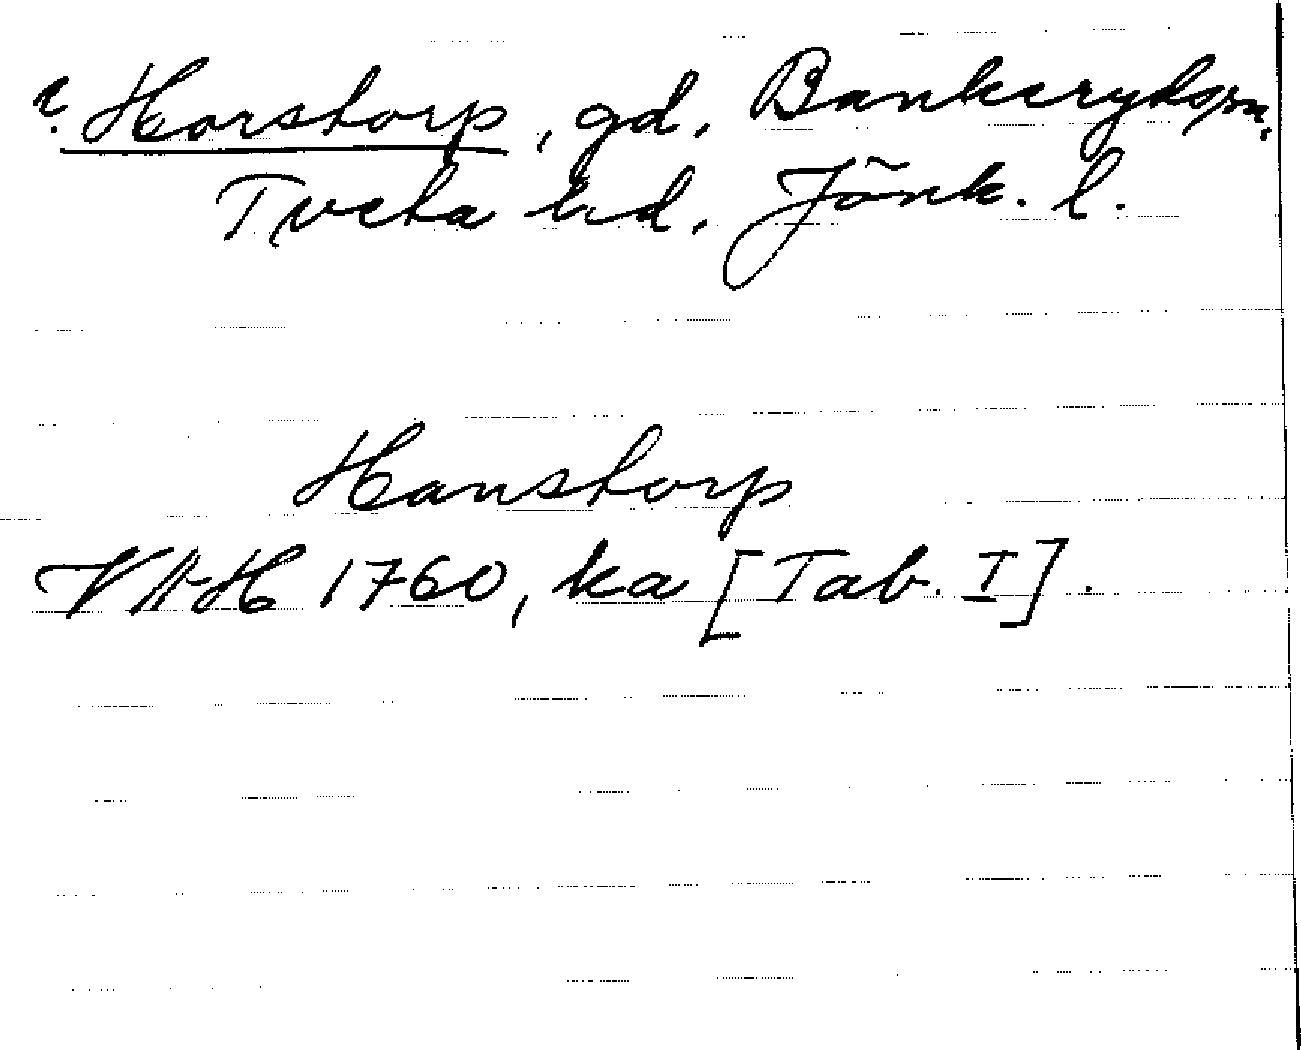 ? Horstorp, gd, Bankeryds sn,
Tveta hd, Jönk. l.
Hanstorp
VAH 1760, ka [Tab. I].